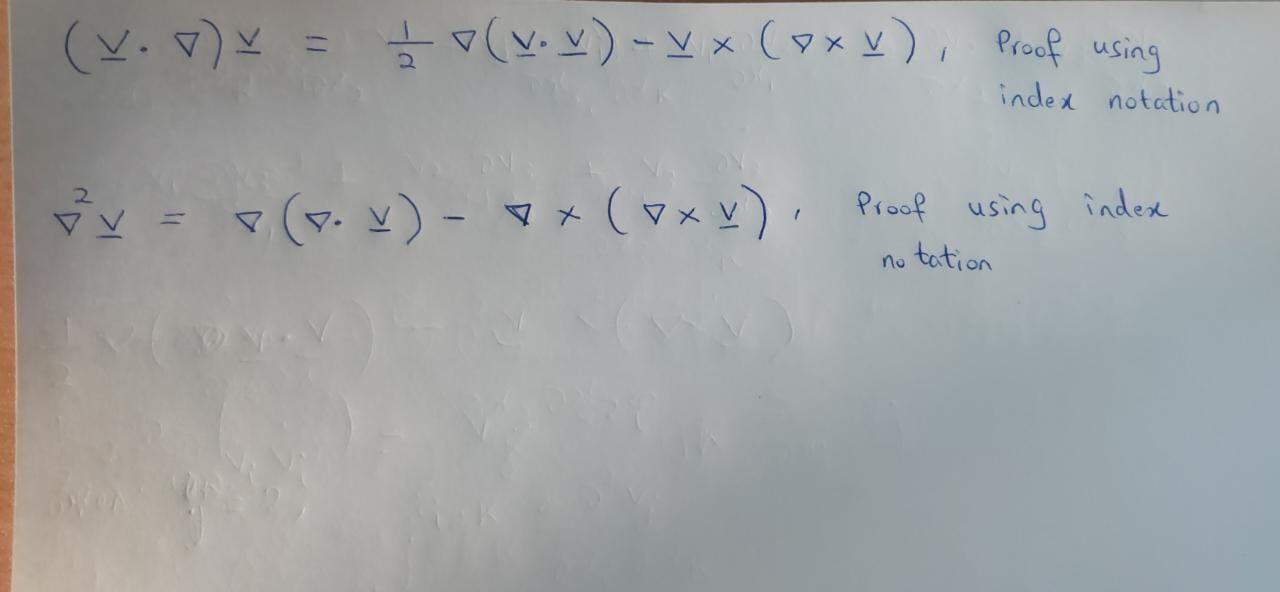 (V · ∇) V = 1/2 ∇(V · V) − V × (∇ × V), Proof using
index notation
∇² V = ∇(∇ · V) − ∇ × (∇ × V), Proof using index
notation